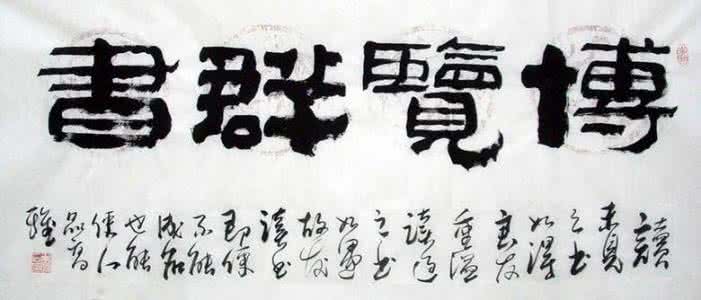 博覽群書
讀
未見
之書
如得
良友
重溫
讀過
之書
如逢
故友
讀書
即使
不能
成名
也能
使人
品高
雅